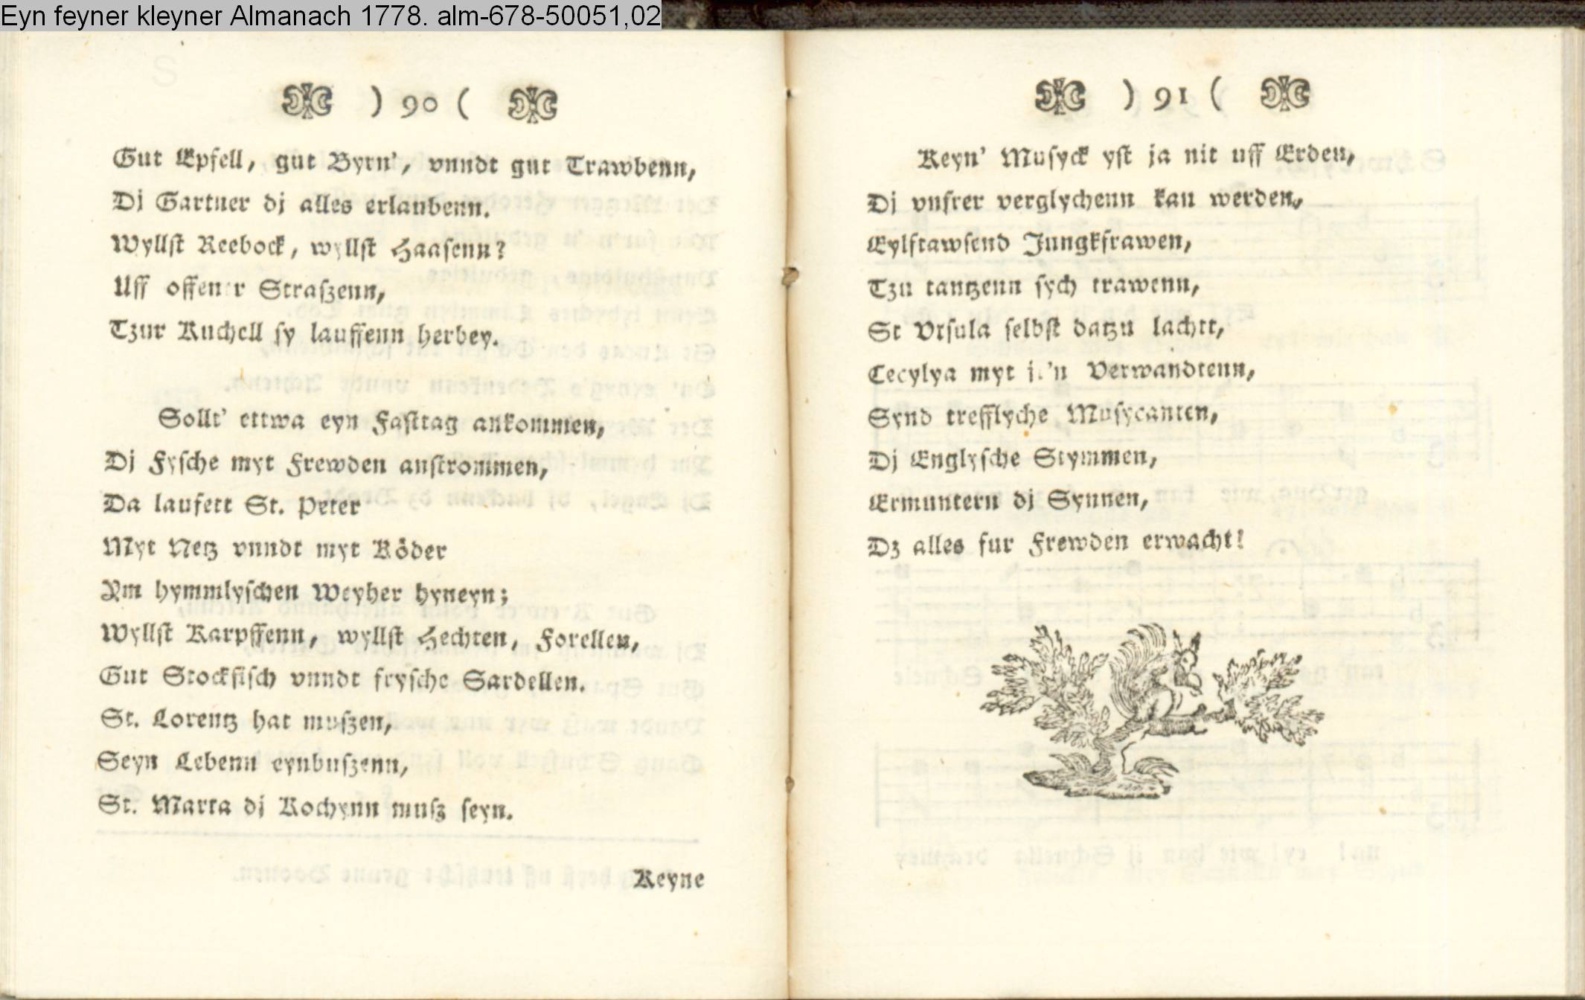 Eyn feyner kleyner Almanach 1778. alm-678-50051,02
) 90 (
Gut Epfell, gut Byrn', vnndt gut Trawbenn,
Dj Gartner dj alles erlaubenn.
Wyllst Reebock, wyllst Haasenn?
Uff offen'r Straszenn,
Tzur Kuchell sy lauffenn herbey.
Sollt' ettwa eyn Fasttag ankommen,
Dj Fysche myt Frewden anstrommen,
Da laufett St. Peter
Myt Netz vnndt myt Köder
Ym hymmlyschen Weyher hyneyn;
Wyllst Karpffenn, wyllst Hechten, Forellen,
Gut Stockfisch vnndt frysche Sardellen.
St. Lorentz hat muszen,
Seyn Lebenn eynbuszenn,
St. Marta dj Kochynn musz seyn.
Keyne
) 91 (
Keyn' Musyck yst ja nit uff Erden,
Dj vnsrer verglychenn kan werden,
Eylftawsend Jungkfrawen,
Tzu tantzenn sych trawenn,
St Vrsula selbst datzu lachtt,
Cecylya myt jr'n Verwandtenn,
Synd trefflyche Musycanten,
Dj Englysche Stymmen,
Ermuntern dj Synnen,
Dz alles fur Frewden erwacht!